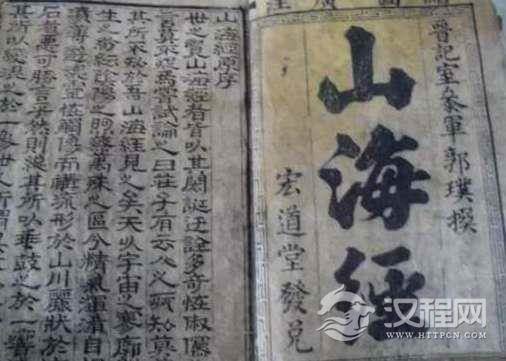 圖廣注
晉記室參軍 郭璞撰
山海經
宏道堂發兌
山海經原序
世之覽山海經者皆以其閎誕迂誇多奇怪俶儻
言莫不疑焉嘗試論之曰莊子有云人之所知莫
其所不知吾於山海經見之矣夫以宇宙之寥廓
生之紛紜陰陽之煦蒸萬殊之區分精氣渾淆自
濆薄遊魂靈怪觸像而構流形於山川麗狀於
石者惡可勝言乎然則總其所以乖鼓之於一響
其所以變之於一象世之所謂
汉程网
WWW.HTTPCN.COM